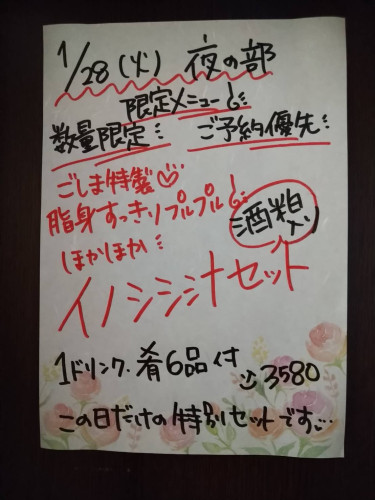 1/28（火） 夜の部
限定メニュー
数量限定 ご予約優先
ごしま特製♡
脂身すっきりプルプル
酒粕入り
ほかほか
イノシシ汁セット
1ドリンク、肴6品付
3580
この日だけの特別セットです